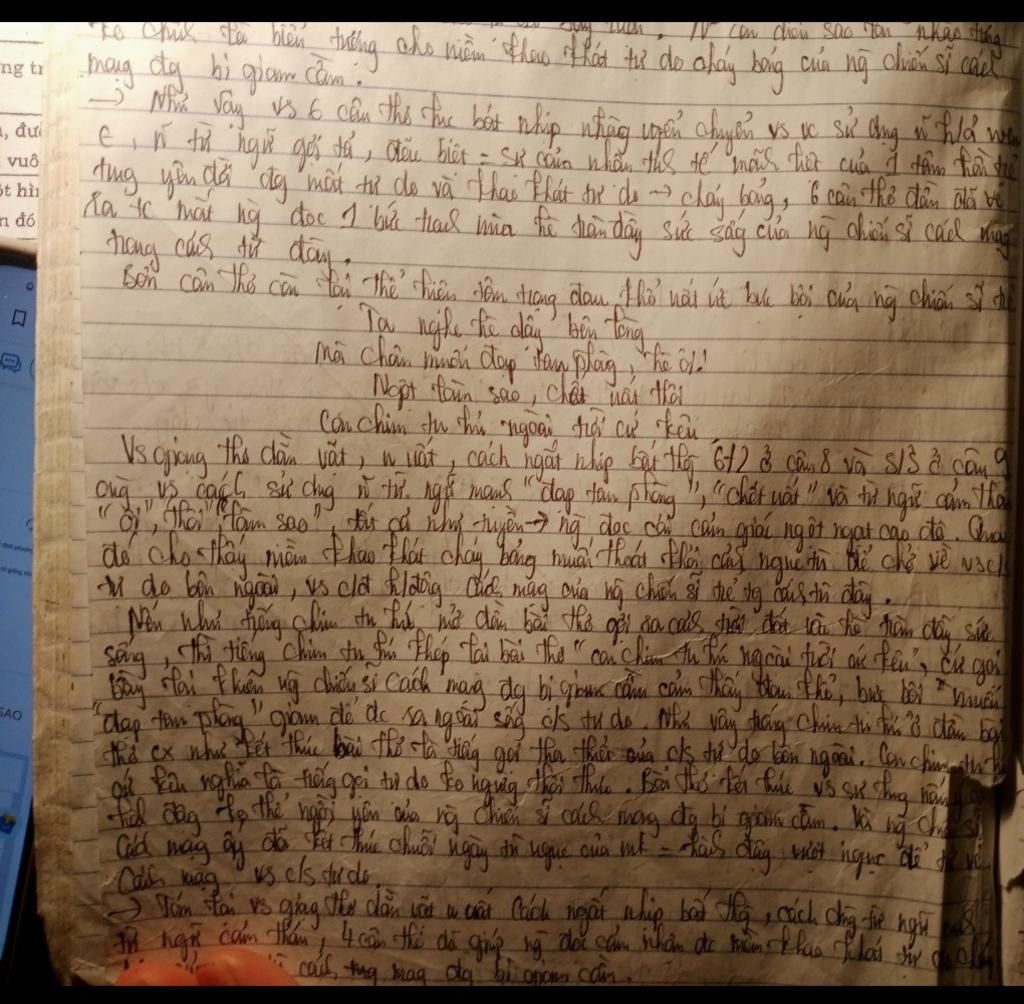 mang đg bị giam cầm.
→ Như vậy vs 6 câu thơ lục bát nhịp nhàng uyển chuyển vs vc sử dụng n h/ả
e, n từ ngữ gợi tả, đặc biệt = sự cảm nhận tinh tế mãnh liệt của 1 tâm hồn trẻ
trung yêu đời đg mất tự do và khao khát tự do → cháy bỏng, 6 câu thơ đầu đã vẽ
ra tc mắt ng đọc 1 bức tranh mùa hè tràn đầy sức sống của ng chiến sĩ cách mạng
trong cảnh tù đày.
Bốn câu thơ còn lại thể hiện tâm trạng đau khổ uất ức bực bội của ng chiến sĩ trẻ
Ta nghe hè dậy bên lòng
Mà chân muốn đạp tan phòng, hè ôi!
Ngột làm sao, chết uất thôi
Con chim tu hú ngoài trời cứ kêu
Vs giọng thơ dằn vặt, u uất, cách ngắt nhịp bất thg 6/2 ở câu 8 và 3/3 ở câu 9
cùng vs cách sử dụng n từ ngữ mạnh "đạp tan phòng", "chết uất" và từ ngữ cảm thán
"ôi", "thôi", "làm sao", tất cả như truyền → ng đọc cái cảm giác ngột ngạt cao độ. Qua
đó cho thấy niềm khao khát cháy bỏng muốn thoát khỏi cảnh ngục tù để trở về vs c/s
tự do bên ngoài, vs c/đ h/động cách mạng của ng chiến sĩ trẻ tg cảnh tù đày.
Nếu như tiếng chim tu hú mở đầu bài thơ gợi ra cảnh trời đất vào hè tràn đầy sức
sống, thì tiếng chim tu hú khép lại bài thơ "con chim tu hú ngoài trời cứ kêu", cứ gọi
bầy lại khiến ng chiến sĩ cách mạng đg bị giam cầm cảm thấy đau khổ, bực bội "muốn
"đạp tan phòng" giam để đc ra ngoài sống c/s tự do. Như vậy tiếng chim tu hú ở đầu bài
thơ cx như kết thúc bài thơ là tiếng gọi tha thiết của c/s tự do bên ngoài. Con chim tu hú
cứ kêu nghĩa là tiếng gọi tự do ko ngừng thôi thúc. Bài thơ kết thúc vs sự
ko thể ngồi yên của ng chiến sĩ cách mạng đg bị giam cầm. Và ng chiến sĩ
Cách mạng ấy đã kết thúc chuỗi ngày tù ngục của mk = hành động vượt ngục để về
Cách mạng vs c/s tự do.
→ Tóm lại vs giọng thơ dằn vặt u uất cách ngắt nhịp bất thg, cách dùng từ ngữ
từ ngữ cảm thán, 4 câu thơ đã giúp ng đọc cảm nhận đc niềm khao khát tự do cháy
cách mạng đg bị giam cầm.